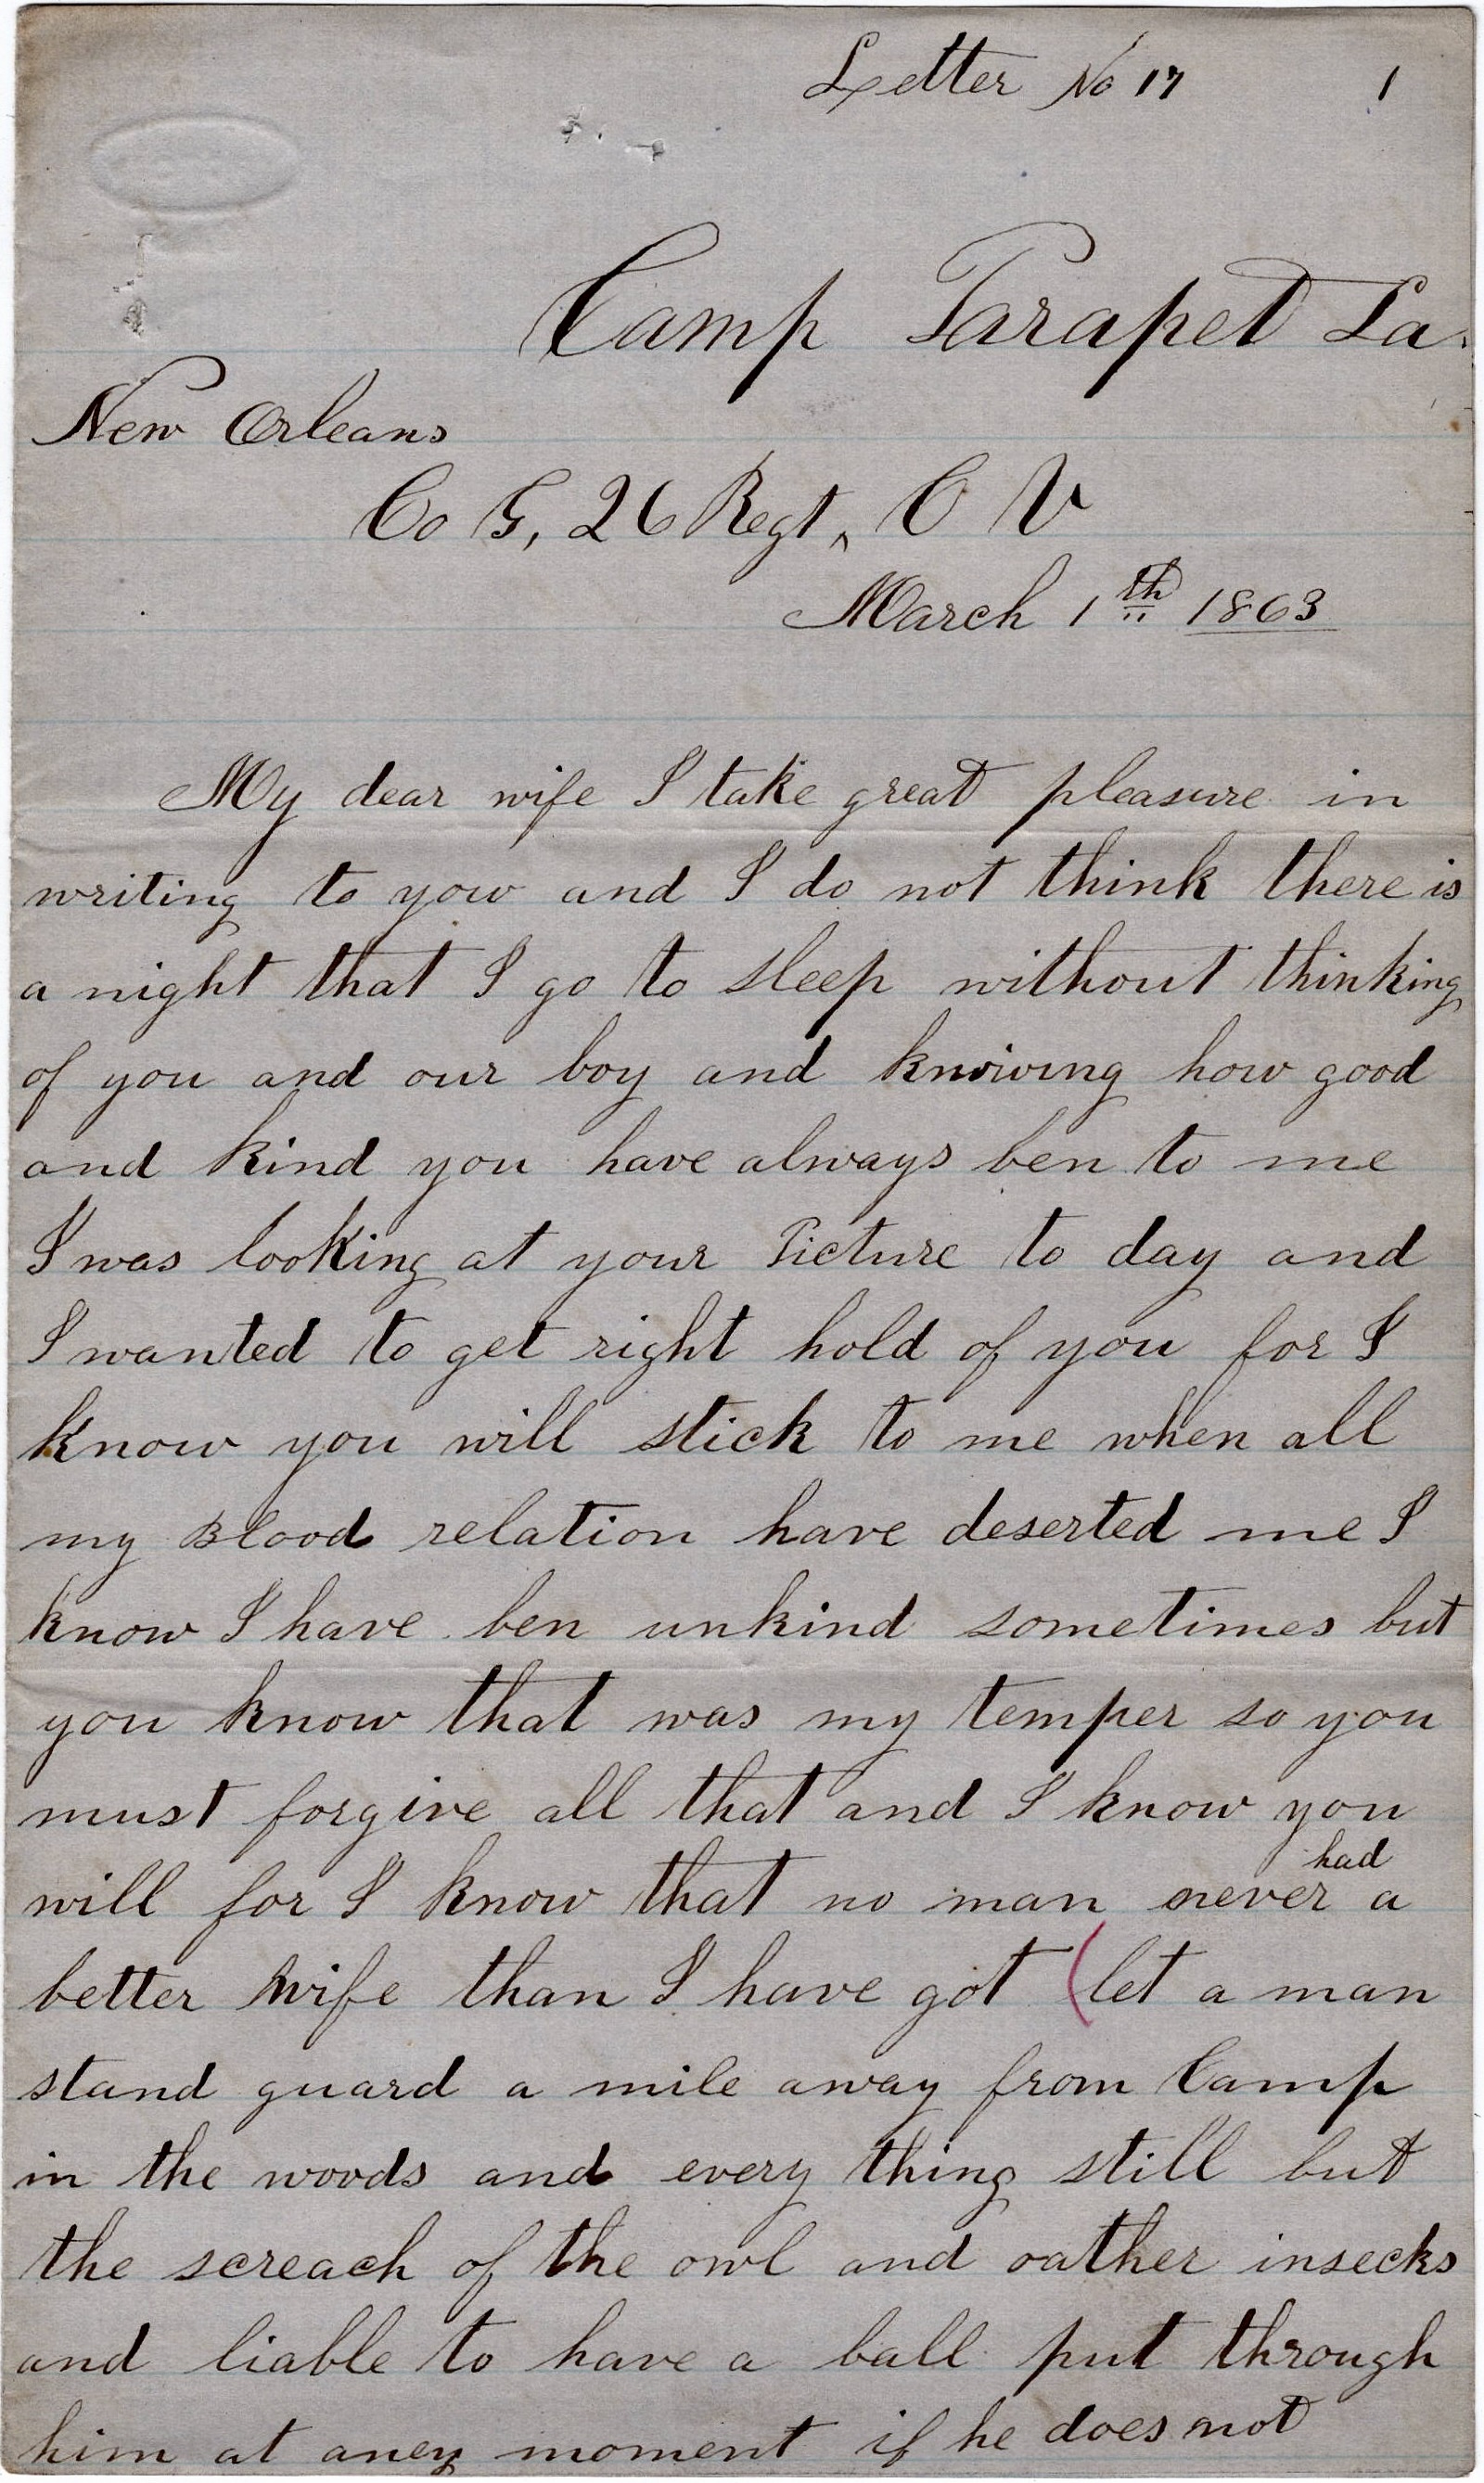 Letter No 17 1
Camp Parapet La.
New Orleans
Co G, 26 Regt, C V
March 1th 1863
My dear wife I take great pleasure in
writing to yow and I do not think there is
a night that I go to sleep without thinking
of you and our boy and knowing how good
and kind you have always ben to me
I was looking at your Picture to day and
I wanted to get right hold of you for I
know you will stick to me when all
my Blood relation have deserted me I
know I have ben unkind sometimes but
you know that was my temper so you
must forgive all that and I know you
had
will for I know that no man never a
better wife than I have got (let a man
stand guard a mile away from Camp
in the woods and every thing still but
the screach of the owl and oather insecks
and liable to have a ball put through
him at aney moment if he does not